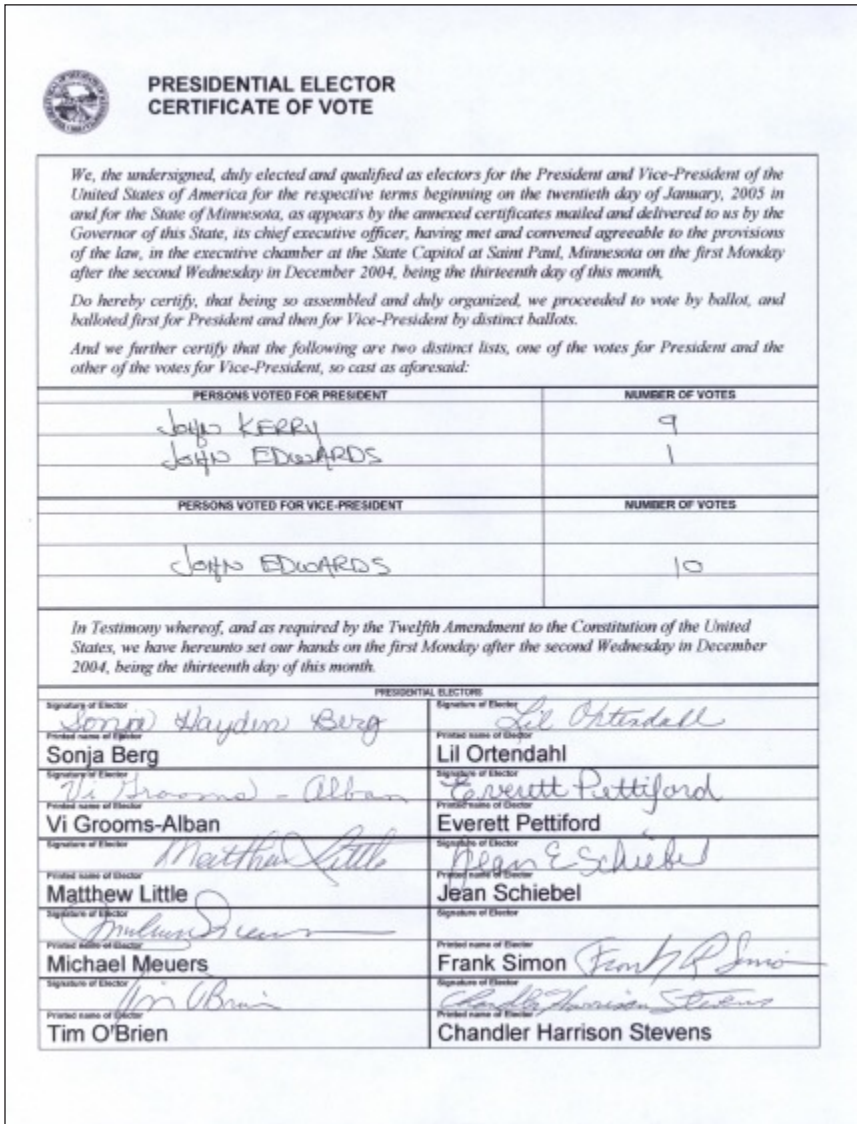 PRESIDENTIAL ELECTOR
CERTIFICATE OF VOTE
We, the undersigned, duly elected and qualified as electors for the President and Vice-President of the
United States of America for the respective terms beginning on the twentieth day of January, 2005 in
and for the State of Minnesota, as appears by the annexed certificates mailed and delivered to us by the
Governor of this State, its chief executive officer, having met and convened agreeable to the provisions
of the law, in the executive chamber at the State Capitol at Saint Paul, Minnesota on the first Monday
after the second Wednesday in December 2004, being the thirteenth day of this month,
Do hereby certify, that being so assembled and duly organized, we proceeded to vote by ballot, and
balloted first for President and then for Vice-President by distinct ballots.
And we further certify that the following are two distinct lists, one of the votes for President and the
other of the votes for Vice-President, so cast as aforesaid:
PERSONS VOTED FOR PRESIDENT NUMBER OF VOTES
JOHN KERRY 9
JOHN EDWARDS 1
PERSONS VOTED FOR VICE-PRESIDENT NUMBER OF VOTES
JOHN EDWARDS 10
In Testimony whereof, and as required by the Twelfth Amendment to the Constitution of the United
States, we have hereunto set our hands on the first Monday after the second Wednesday in December
2004, being the thirteenth day of this month.
PRESIDENTIAL ELECTORS
Signature of Elector Signature of Elector
Sonja Hayden Berg Lil Ortendahl
Printed name of Elector Printed name of Elector
Sonja Berg Lil Ortendahl
Signature of Elector Signature of Elector
Vi Grooms-Alban Everett Pettiford
Printed name of Elector Printed name of Elector
Vi Grooms-Alban Everett Pettiford
Signature of Elector Signature of Elector
Matthew Little Jean E Schiebel
Printed name of Elector Printed name of Elector
Matthew Little Jean Schiebel
Signature of Elector Signature of Elector
Printed name of Elector Printed name of Elector
Michael Meuers Frank Simon Frank R Simon
Signature of Elector Signature of Elector
Tim O'Brien Chandler Harrison Stevens
Printed name of Elector Printed name of Elector
Tim O'Brien Chandler Harrison Stevens